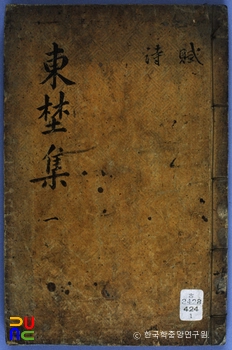 賦
詩
東埜集 一
424
1
© 한국학중앙연구원